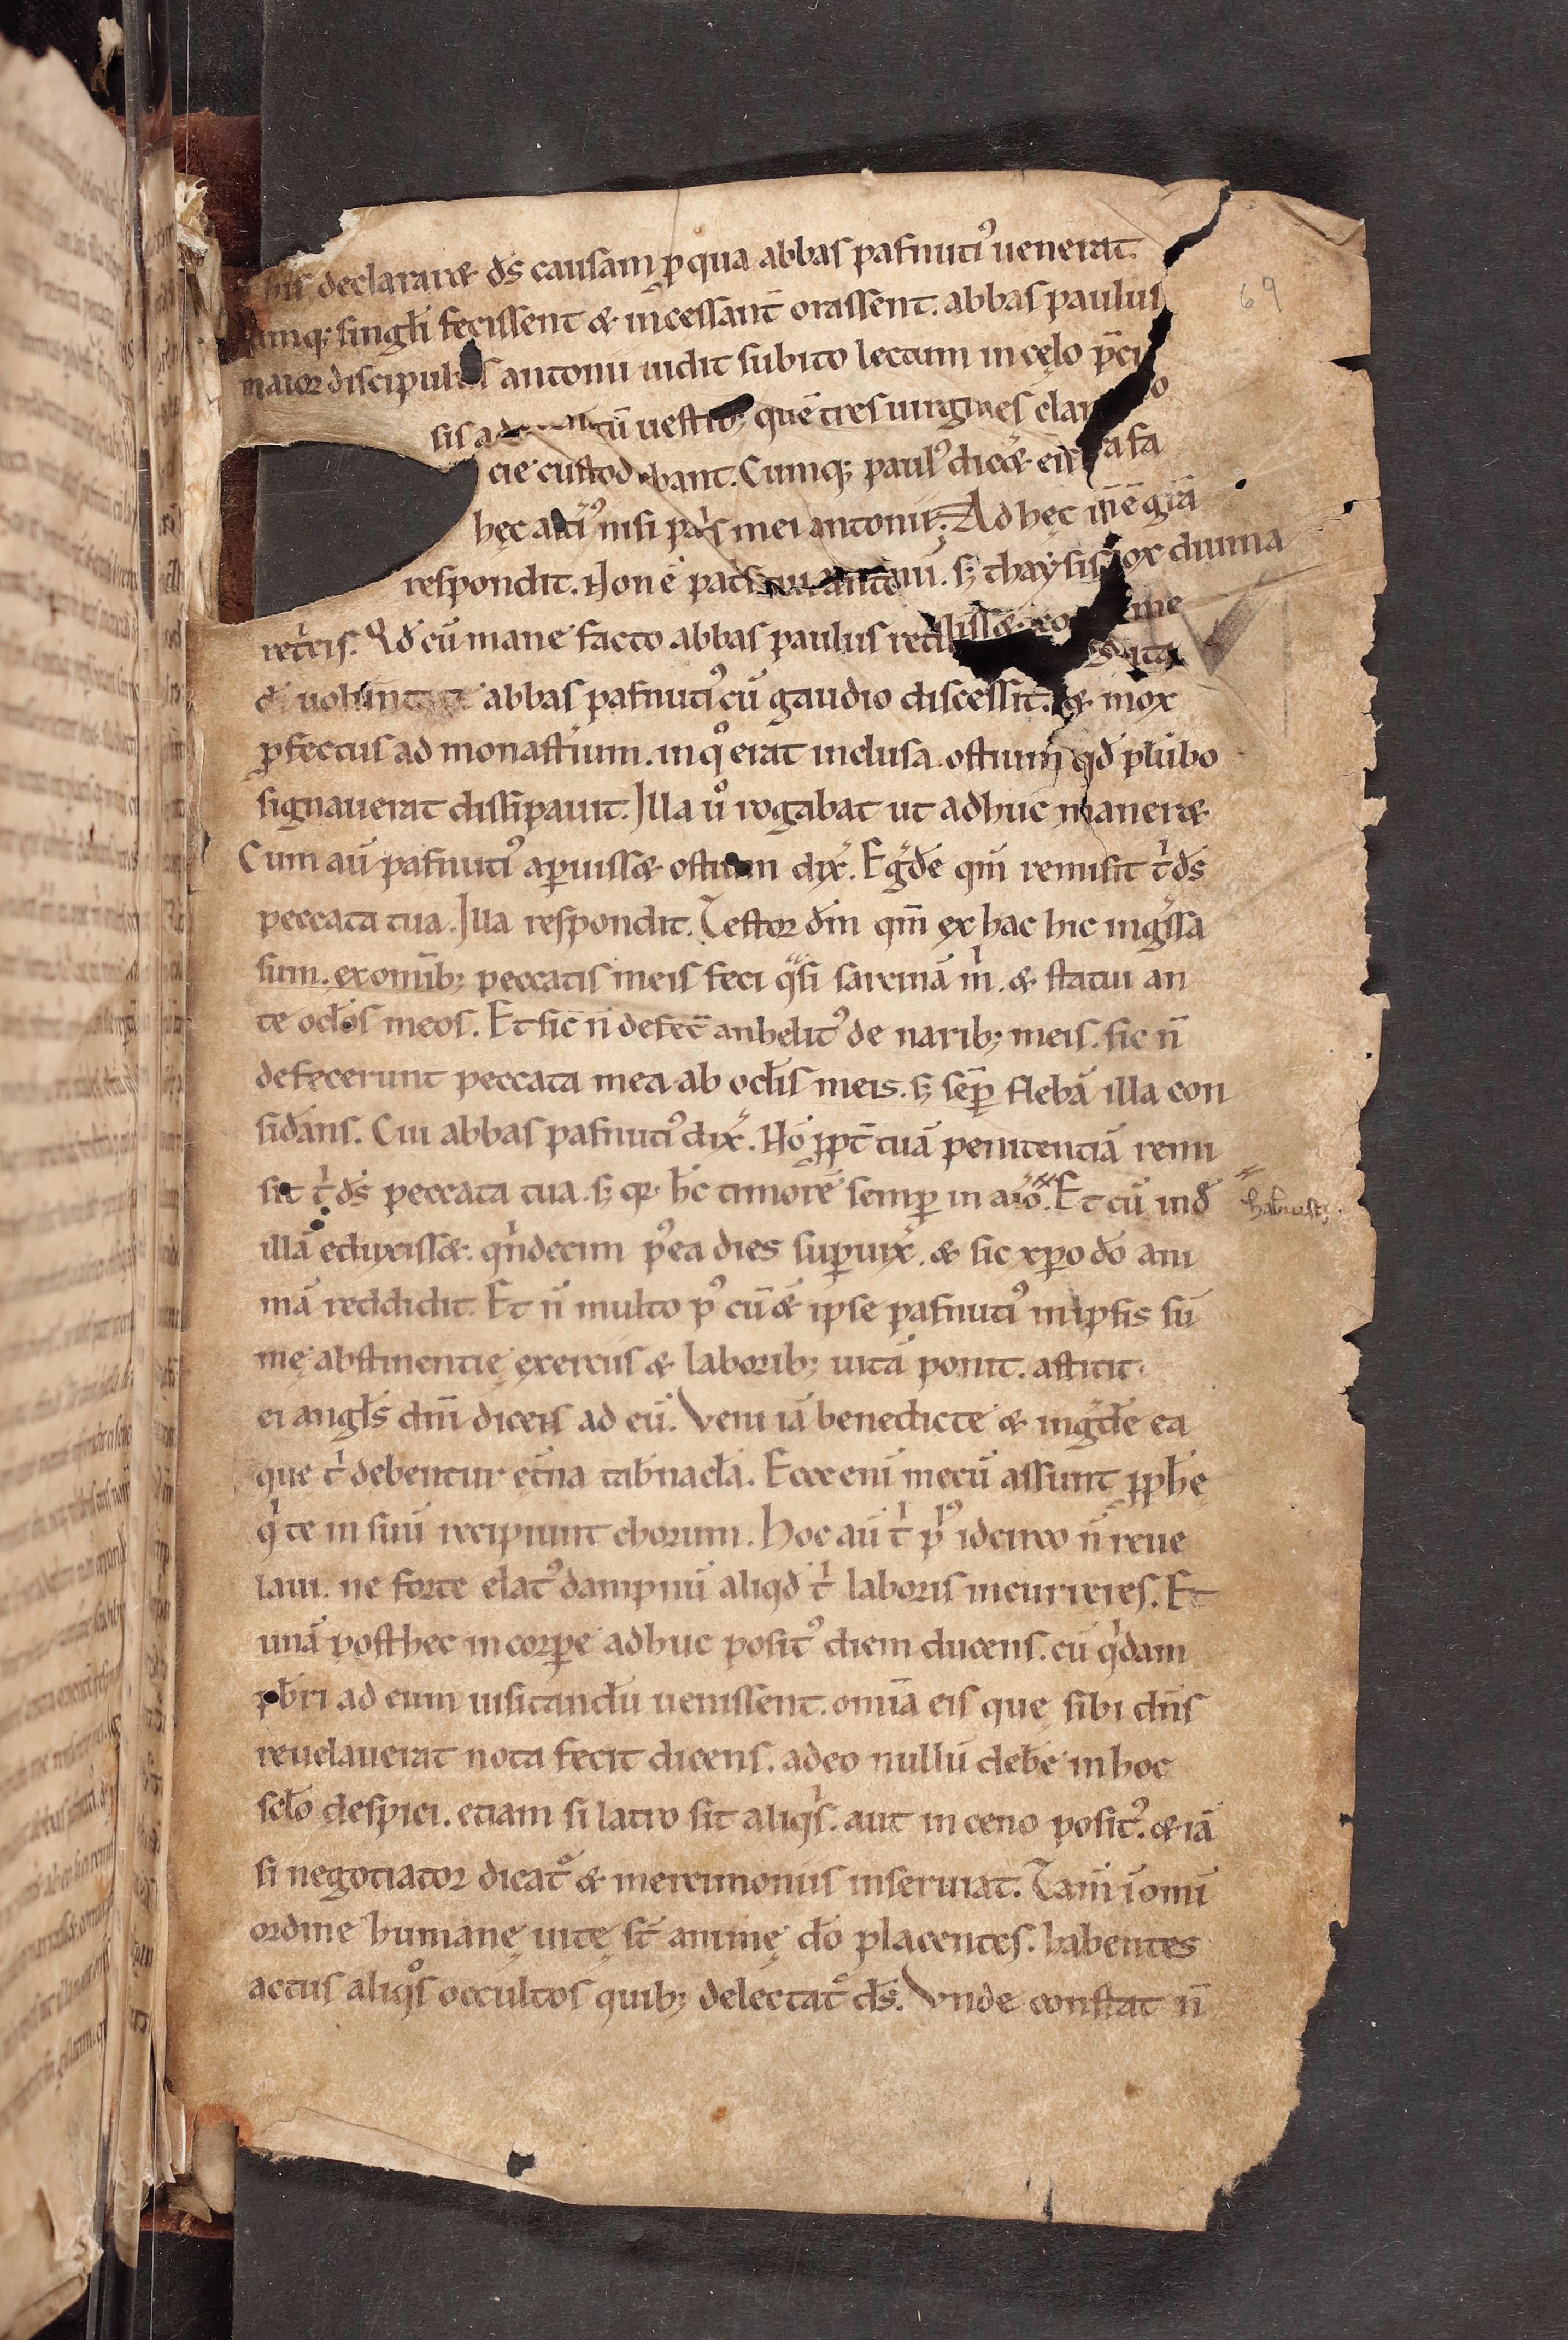 declararet d̄s causam ꝑ qua abbas pafnuti᷒ uenerat.
singłi fecissent & incessant̄ orassent. abbas paulus
maior discipulus antonii uidit subito lectum in cęlo p̄ci
sis uestib; quē tres uirgines clar
cie custod bant. Cumq; paul᷒ diceret ei
hęc nisi pat̄s mei antonii; Ad hęc
respondit. Non ē pat̄s tui antonii. sꝫ thaysis diuina
ret̄cis. Qđ cū mane facto abbas paulus me
d̄i uoluntate abbas pafnuti᷒ cū gaudio discessit. & mox
ꝓfectus ad monast̄ium. in qͦ erat inclusa. ostium qđ plūbo
signauerat dissipauit. Illa uͦ rogabat ut adhuc maneret
Cum aū pafnuti᷒ aꝑuisset ostium dix̄. Egͬđe qm̄ remisit tⁱ d̄s
peccata tua. Illa respondit. Testor d̄m qm̄ ex hac hic ingͬssa
sum. ex omīb; peccatis meis feci qͣsi sarcinā mⁱ. & statui an
te ocłos meos. Et sic n̄ defec̄ anhelit᷒ de narib; meis. sic n̄
defecerunt peccata mea ab ocłis meis. sꝫ sēꝑ flebā illa con
sid̄ans. Cui abbas pafnuti᷒ dix̄. Nō ꝓpt̄ tuā penitentiā remi
sit tⁱ d̄s peccata tua. sꝫ qꝛ h̄c timorē semꝑ in aīo. Et cū inđ
habuisti.
illā eduxisset. qͥndecim p᷒ ea dies suꝑuix̄. & sic xp̄o d̄o ani
mā reddidit. Et n̄ multo p᷒ cū & ipse pafnuti᷒ in ipsis sū
mę abstinentię exerciis & laborib; uitā ponit. astitit
ei angłs dn̄i dicens ad eū. Veni iā benedicte & ingͬđe ea
que tⁱ debentur et̄na tab̄nacła. Ecce eni mecū assunt ꝓph̄ę
qͥ te in suū recipiunt chorum. Hoc aū tⁱ pͥ᷒ idcirco n̄ reue
laui. ne forte elat᷒ dampnū aliqđ tⁱ laboris incurreres. Et
unā post hec in corꝑe adhuc posit᷒ diem ducens. cū qͥdam
pb̄ri ad eum uisitandū uenissent. omīa eis que sibi dn̄s
reuelauerat nota fecit dicens. adeo nullū deb̄e in hoc
scło despici. etiam si latro sit aliqͥs. aut in ceno posit᷒. & iā
si negotiator dicat᷑ & mercimoniis inseruiat. Tam̄ ī omi
ordine humanę uitę st̄ animę d̄o placentes. habentes
actus aliqͦs occultos quib; delectat᷑ d̄s. Vnde constat n̄